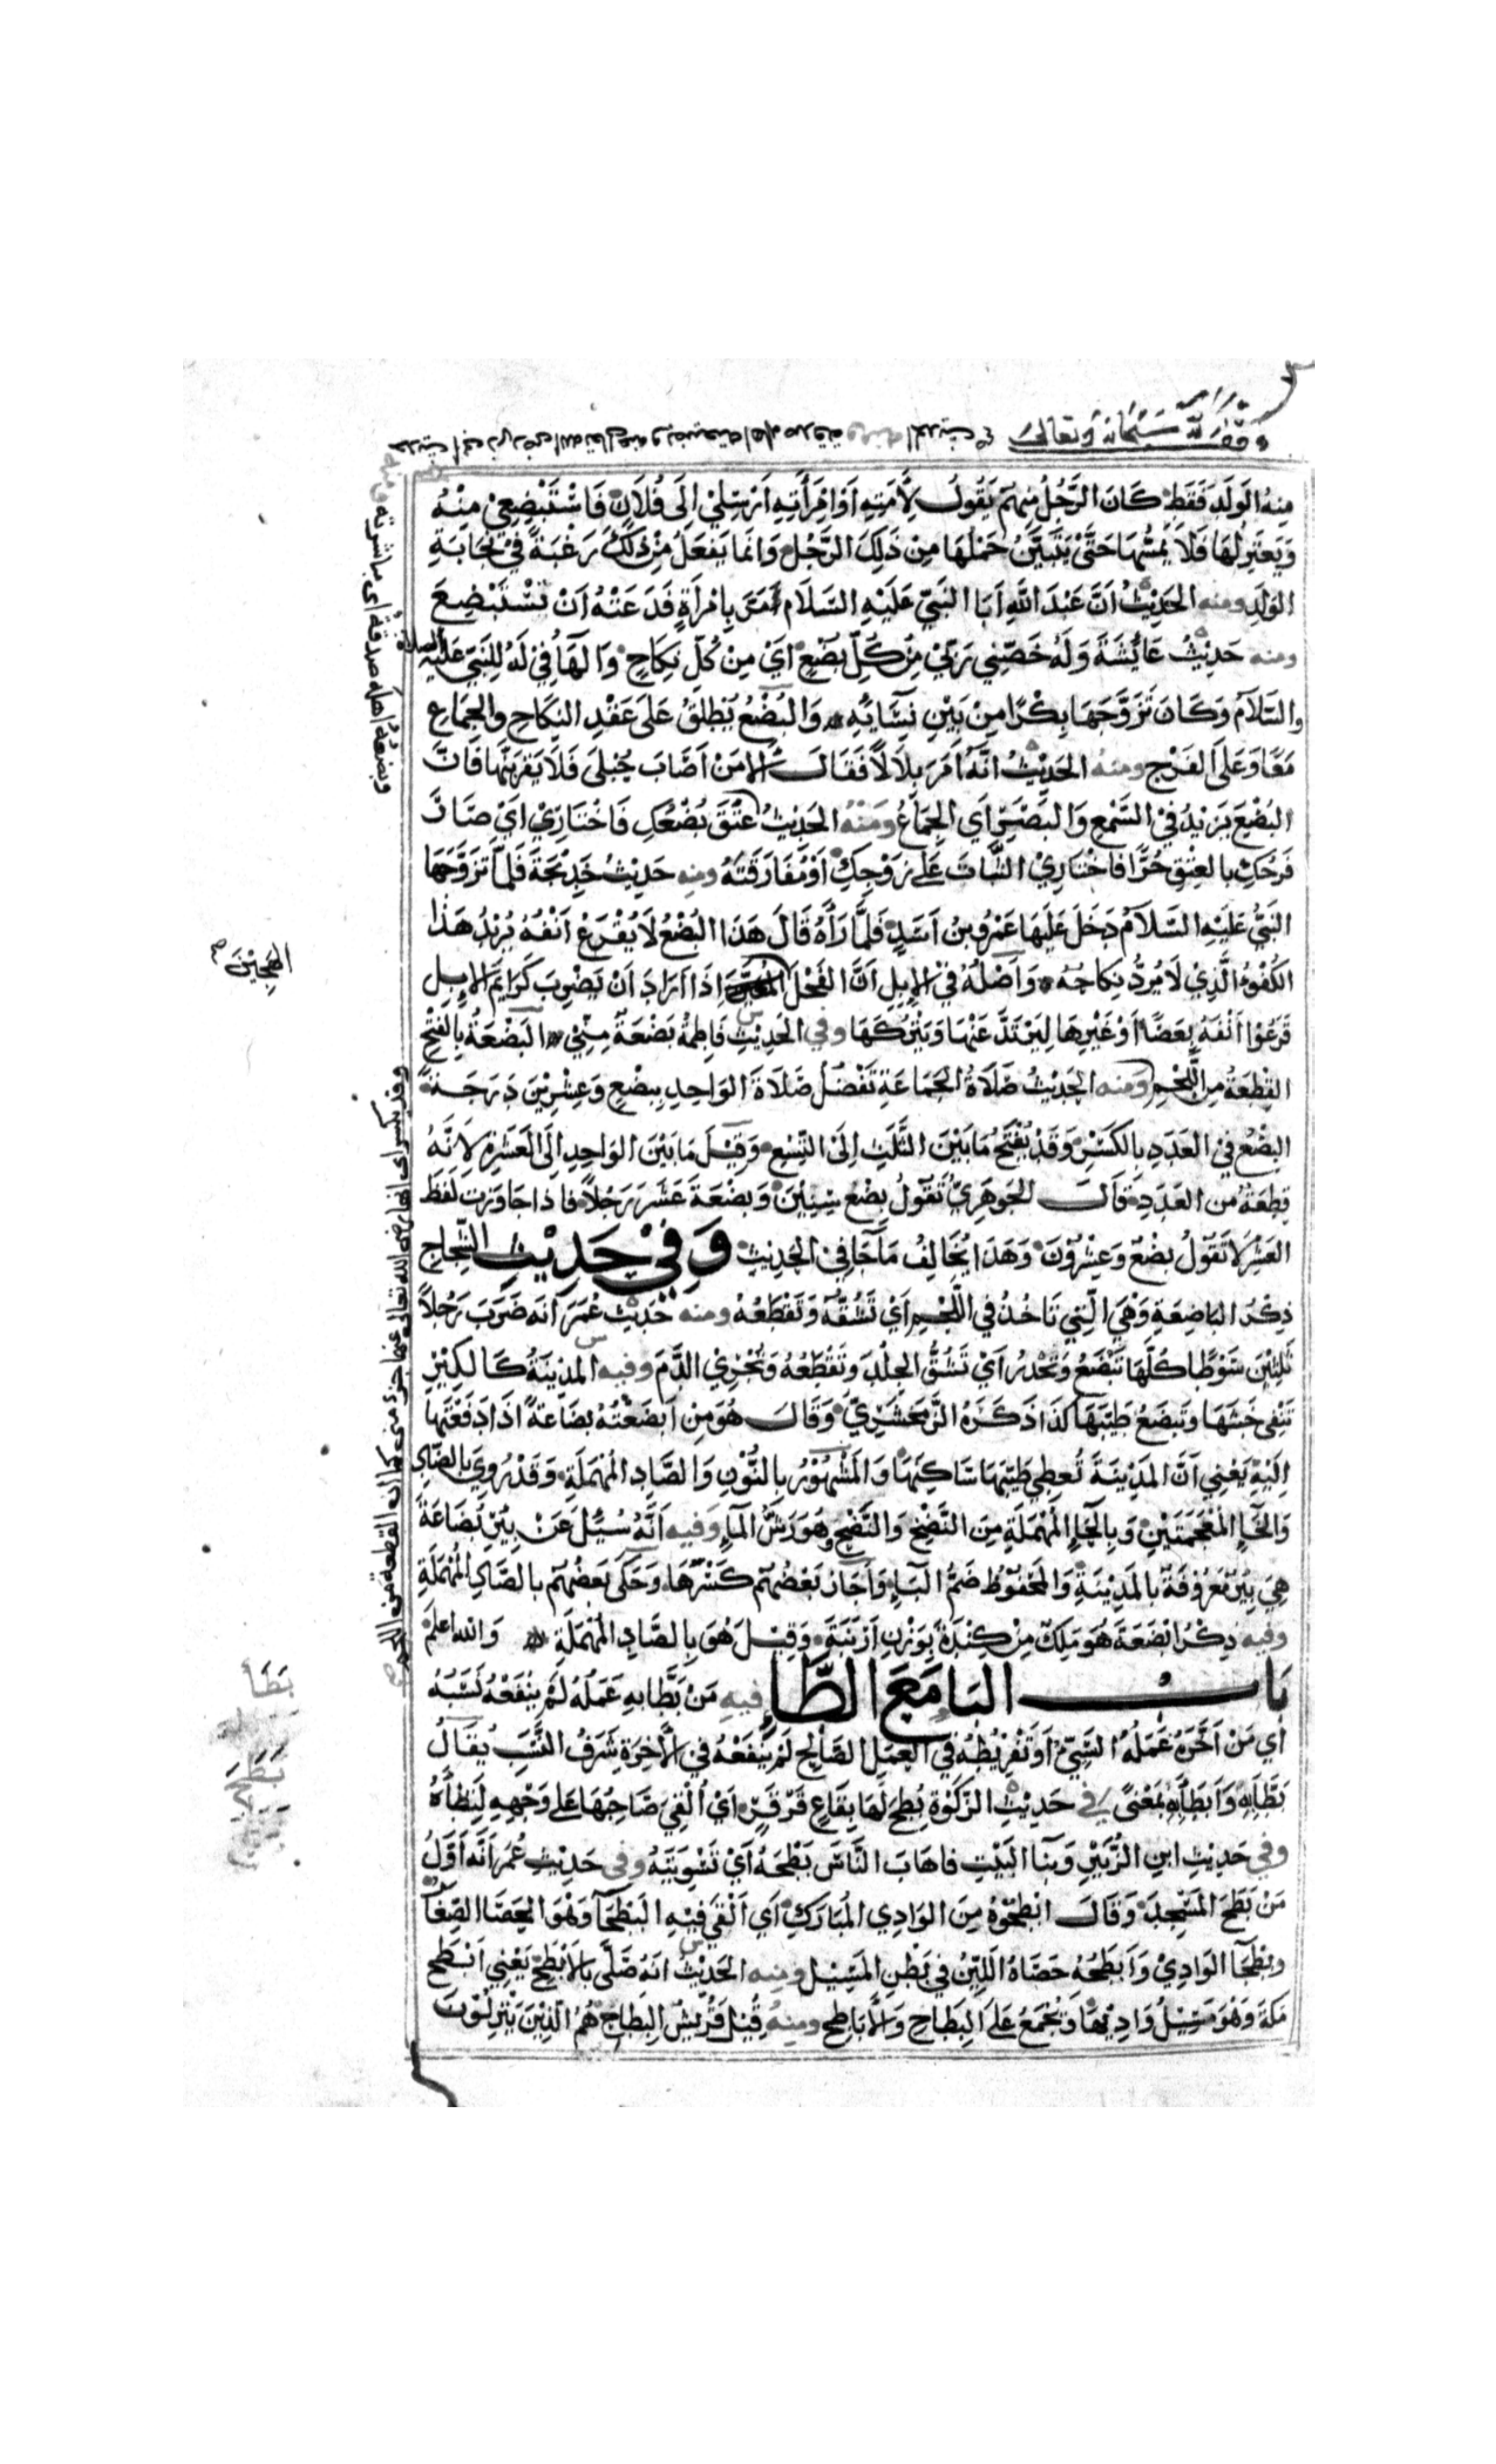 وقف لله سبحانه وتعالى
منه الولد فقط كان الرجل منهم يقول لأمته او امرأته ارسلي الى فلان فاستبضعي منه
ويعتزلها فلا يمسها حتى يتبين حملها من ذلك الرجل وانما يفعل من ذلك رغبة في نجابة
الولد ومنه الحديث أن عبد الله أبا النبي عليه السلام مر بامرأة فدعته أن تستبضع
ومنه حديث عائشة وله خصني ربي من كل بضع اي من كل نكاح والهاء في له للنبي عليه الصلاة
والسلام وكان تزوجها بكرا من بين نسائه والبضع يطلق على عقد النكاح والجماع
معا وعلى الفرج ومنه الحديث انه امر بلالا فقال الا من اصاب حبلى فلا يقربنها فان
البضع يزيد في السمع والبصر اي الجماع ومنه الحديث عتق بضعك فاختاري اي صار
فرجك بالعتق حرا فاختاري الثبات على زوجك او مفارقته ومنه حديث خديجة فلما تزوجها
النبي عليه السلام دخل عليها عمرو بن اسد فلما رآه قال هذا البضع لا يقرع انفه يريد هذا
الكفو الذي لا يرد نكاحه واصله في الابل أن الفحل اذا اراد أن يضرب كرايم الابل
الهجين صح
قرعوا انفه بعصا او غيرها ليرتد عنها ويتركها وفي الحديث فاطمة بضعة مني البضعة بالفتح
القطعة من اللحم ومنه الحديث صلاة الجماعة تفضل صلاة الواحد ببضع وعشرين درجة
البضع في العدد بالكسر وقد يفتح ما بين الثلث الى التسع وقيل ما بين الواحد الى العشرة لانه
قطعة من العدد قال الجوهري تقول بضع سنين وبضعة عشر رجلا فاذا جاوزت لفظ
العشر لا تقول بضع وعشرون وهذا يخالف ما جا في الحديث وفي حديث الشجاج
ذكر الباضعة وهي التي تاخذ في اللحم اي تشقه وتقطعه ومنه حديث عمر انه ضرب رجلا
ثلثين سوطا كلها تبضع وتحدر اي تشق الجلد وتقطعه وتجري الدم وفيه المدينة كالكير
تنفي خبثها وتبضع طيبها كذا ذكره الزمخشري وقال هو من ابضعته بضاعة اذا دفعتها
اليه يعني أن المدينة تعطي طيبها ساكنها والمشهور بالنون والصاد المهملة وقد روي بالضاد
والخاء المعجمتين وبالحاء المهملة من النضخ والنضح وهو رش الماء وفيه انه سئل عن بئر بضاعة
هي بئر معروفة بالمدينة والمحفوظ ضم الباء واجاز بعضهم كسرها وحكى بعضهم بالصاد المهملة
وفيه ذكر ابضعة هو ملك من كندة بوزن ارنبة وقيل هو بالصاد المهملة والله اعلم
باب البا مع الطاء فيه من بطا به عمله لم ينفعه نسبه
بطأ
اي من اخره عمله السيئ او تفريطه في العمل الصالح لم ينفعه في الاخرة شرف النسب يقال
بطح
بطا به وابطا به بمعنى في حديث الزكوة بطح لها بقاع قرقر اي القي صاحبها على وجهه لتطأه
وفي حديث ابن الزبير وبنا البيت فاهاب الناس بطحه اي تسويته وفي حديث عمر انه اول
من بطح المسجد وقال ابطحوه من الوادي المبارك اي القى فيه البطحا وهو الحصا الصغار
وبطحا الوادي وابطحه حصاه اللين في بطن المسيل ومنه الحديث انه صلى بالابطح يعني ابطح
مكة وهو مسيل واديها وتجمع على البطاح والاباطح ومنه قيل قريش البطاح هم الذين ينزلون
وبضعه اهله صدقة اي مباشرته
وقد يكسر اى انها رضى الله تعالى عنها جزء منى كما انه القطعة من اللحم